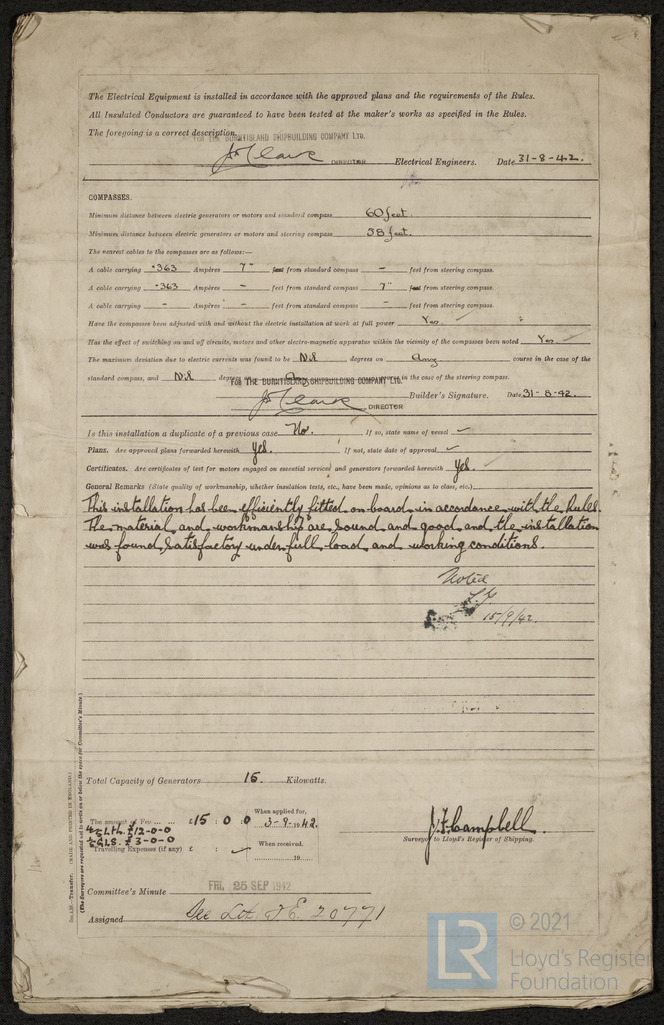 The Electrical Equipment is installed in accordance with the approved plans and the requirements of the Rules.
All Insulated Conductors are guaranteed to have been tested at the maker's works as specified in the Rules.
The foregoing is a correct description.
FOR THE BURNTISLAND SHIPBUILDING COMPANY LTD.
DIRECTOR Electrical Engineers. Date 31-8-42.
COMPASSES.
Minimum distance between electric generators or motors and standard compass 60 feet.
Minimum distance between electric generators or motors and steering compass 58 feet.
The nearest cables to the compasses are as follows:—
A cable carrying .363 Ampères 7" feet from standard compass – feet from steering compass.
A cable carrying .363 Ampères – feet from standard compass 7" feet from steering compass.
A cable carrying – Ampères – feet from standard compass – feet from steering compass.
Have the compasses been adjusted with and without the electric installation at work at full power Yes.
Has the effect of switching on and off circuits, motors and other electro-magnetic apparatus within the vicinity of the compasses been noted Yes.
The maximum deviation due to electric currents was found to be Nil degrees on Any course in the case of the
standard compass, and Nil degrees on Any course in the case of the steering compass.
FOR THE BURNTISLAND SHIPBUILDING COMPANY LTD.
DIRECTOR Builder's Signature. Date 31-8-42.
Is this installation a duplicate of a previous case No. If so, state name of vessel
Plans. Are approved plans forwarded herewith Yes. If not, state date of approval
Certificates. Are certificates of test for motors engaged on essential services and generators forwarded herewith Yes.
General Remarks (State quality of workmanship, whether insulation tests, etc., have been made, opinions as to class, etc.)
This installation has been efficiently fitted on board in accordance with the Rules.
The material and workmanship are sound and good and the installation
was found satisfactory under full load and working conditions.
Noted
15/9/42.
Total Capacity of Generators 15 Kilowatts.
The amount of Fee ... ... £15 : 0 : 0 When applied for, 3-9-1942.
4/5 LTH. £12-0-0
1/5 GLS. £3-0-0
Travelling Expenses (if any) £ : : When received, 19
J. F. Campbell.
Surveyor to Lloyd's Register of Shipping.
Committee's Minute FRI. 25 SEP 1942
Assigned See Ltr. F.E. 20771
(MADE AND PRINTED IN ENGLAND.)
(The Surveyors are requested not to write on or below the space for Committee's Minute.)
LR
© 2021
Lloyd's Register
Foundation